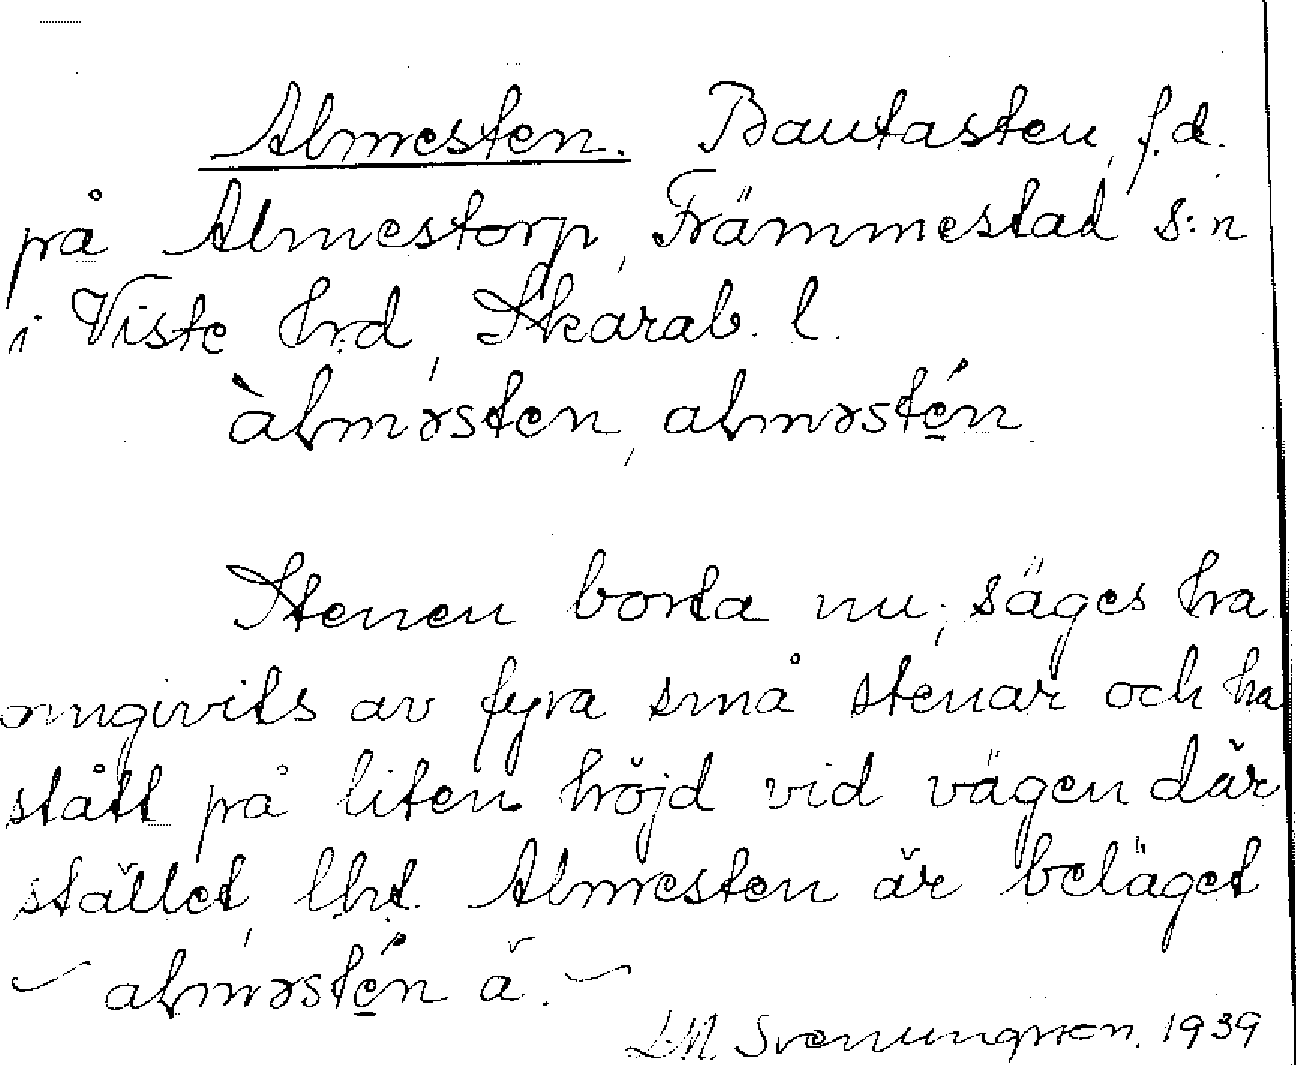 Almesten. Bautasten, f.d.
på Almestorp, Främmestad s:n
i Viste hrd, Skarab. l.
àlməsten, alməsté̱n
Stenen borta nu; säges ha
omgivits av fyra små stenar och ha
stått på liten höjd vid vägen där
stället, lht. Almesten är beläget
~ alməsté̱n ä. ~
D.M. Svenungsson. 1939